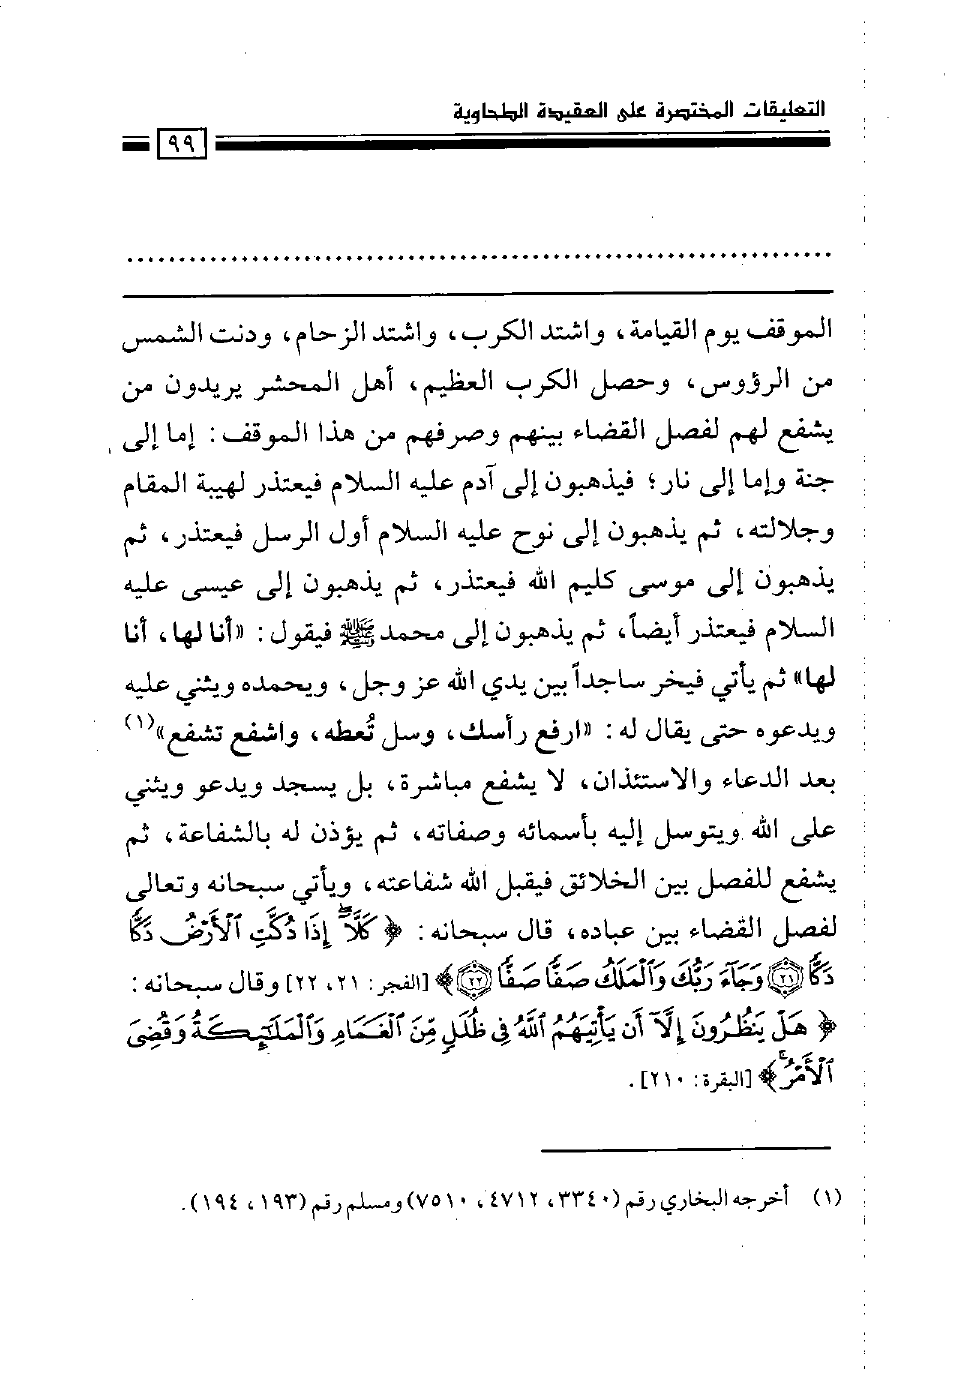 التعليقات المختصرة على العقيدة الطحاوية
٩٩
الموقف يوم القيامة، واشتد الكرب، واشتد الزحام، ودنت الشمس
من الرؤوس، وحصل الكرب العظيم، أهل المحشر يريدون من
يشفع لهم لفصل القضاء بينهم وصرفهم من هذا الموقف: إما إلى
جنة وإما إلى نار؛ فيذهبون إلى آدم عليه السلام فيعتذر لهيبة المقام
وجلالته، ثم يذهبون إلى نوح عليه السلام أول الرسل فيعتذر، ثم
يذهبون إلى موسى كليم الله فيعتذر، ثم يذهبون إلى عيسى عليه
السلام فيعتذر أيضاً، ثم يذهبون إلى محمد ﷺ فيقول: «أنا لها، أنا
لها» ثم يأتي فيخر ساجداً بين يدي الله عز وجل، ويحمده ويثني عليه
ويدعوه حتى يقال له: «ارفع رأسك، وسل تُعطه، واشفع تشفع»(١)
بعد الدعاء والاستئذان، لا يشفع مباشرة، بل يسجد ويدعو ويثني
على الله ويتوسل إليه بأسمائه وصفاته، ثم يؤذن له بالشفاعة، ثم
يشفع للفصل بين الخلائق فيقبل الله شفاعته، ويأتي سبحانه وتعالى
لفصل القضاء بين عباده، قال سبحانه: ﴿كَلَّآۖ إِذَا دُكَّتِ ٱلْأَرْضُ دَكًّا
دَكًّا ٢١ وَجَآءَ رَبُّكَ وَٱلْمَلَكُ صَفًّا صَفًّا ٢٢﴾ [الفجر: ٢١، ٢٢] وقال سبحانه:
﴿هَلْ يَنظُرُونَ إِلَّآ أَن يَأْتِيَهُمُ ٱللَّهُ فِى ظُلَلٍ مِّنَ ٱلْغَمَامِ وَٱلْمَلَٰٓئِكَةُ وَقُضِىَ
ٱلْأَمْرُۚ﴾ [البقرة: ٢١٠].
(١) أخرجه البخاري رقم (٣٣٤٠، ٤٧١٢، ٧٥١٠) ومسلم رقم (١٩٣، ١٩٤).